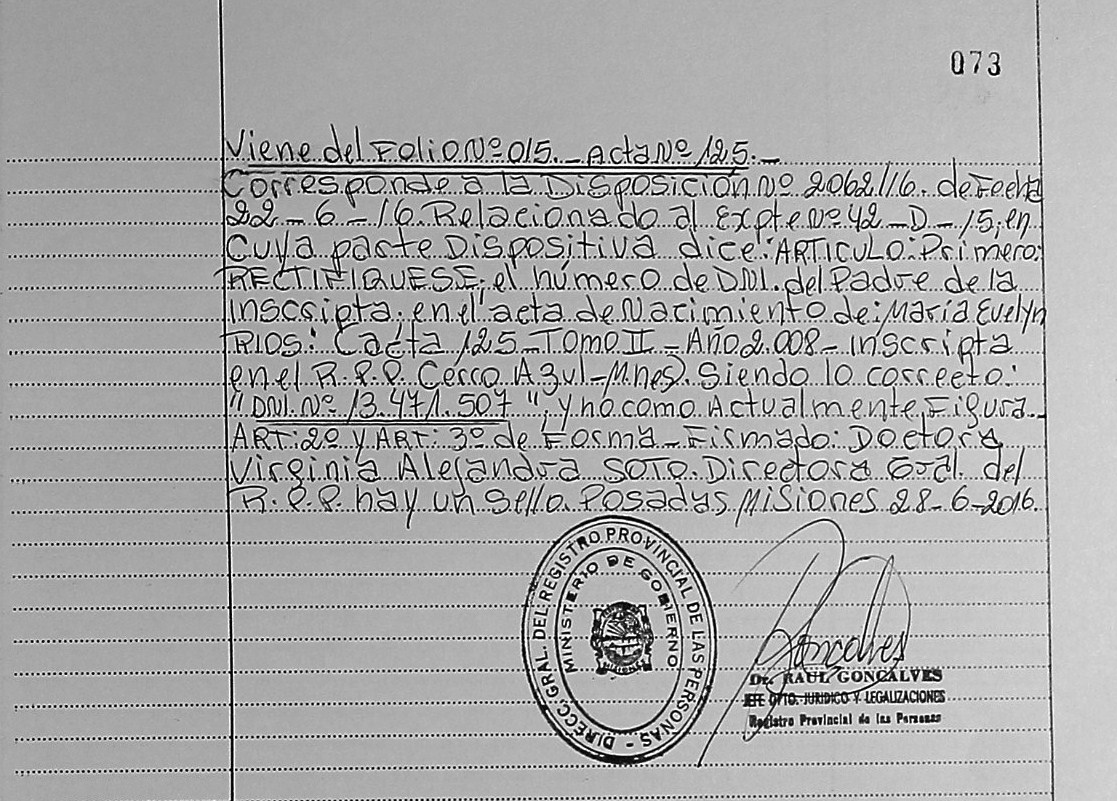 073
Viene del Folio Nº 015._ Acta Nº 125._
Corresponde a la Disposición Nº 2062/16. de Fecha
22_6_16. Relacionado al Expte Nº 42_D_15, en
Cuya parte Dispositiva dice: ARTICULO: Primero:
RECTIFIQUESE; el número de DNI. del Padre de la
inscripta; en el acta de Nacimiento de: María Evelyn
RIOS: Caéta 125_Tomo II_Año 2.008_inscripta
en el R.P.P. Cerro Azul_Mnes). Siendo lo correcto:
"DNI. Nº 13.471.507", y no como Actualmente Figura_
ART: 2º y ART: 3º de Forma_Firmado: Doctora
Virginia Alejandra SOTO. Directora Gral. del
R.P.P. hay un Sello. Posadas Misiones 28_6_2016.
DIRECC. GRAL. DEL REGISTRO PROVINCIAL DE LAS PERSONAS -
MINISTERIO DE GOBIERNO
MISIONES
Goncalves
Dr. RAUL GONCALVES
JEFE DPTO. JURIDICO Y LEGALIZACIONES
Registro Provincial de las Personas